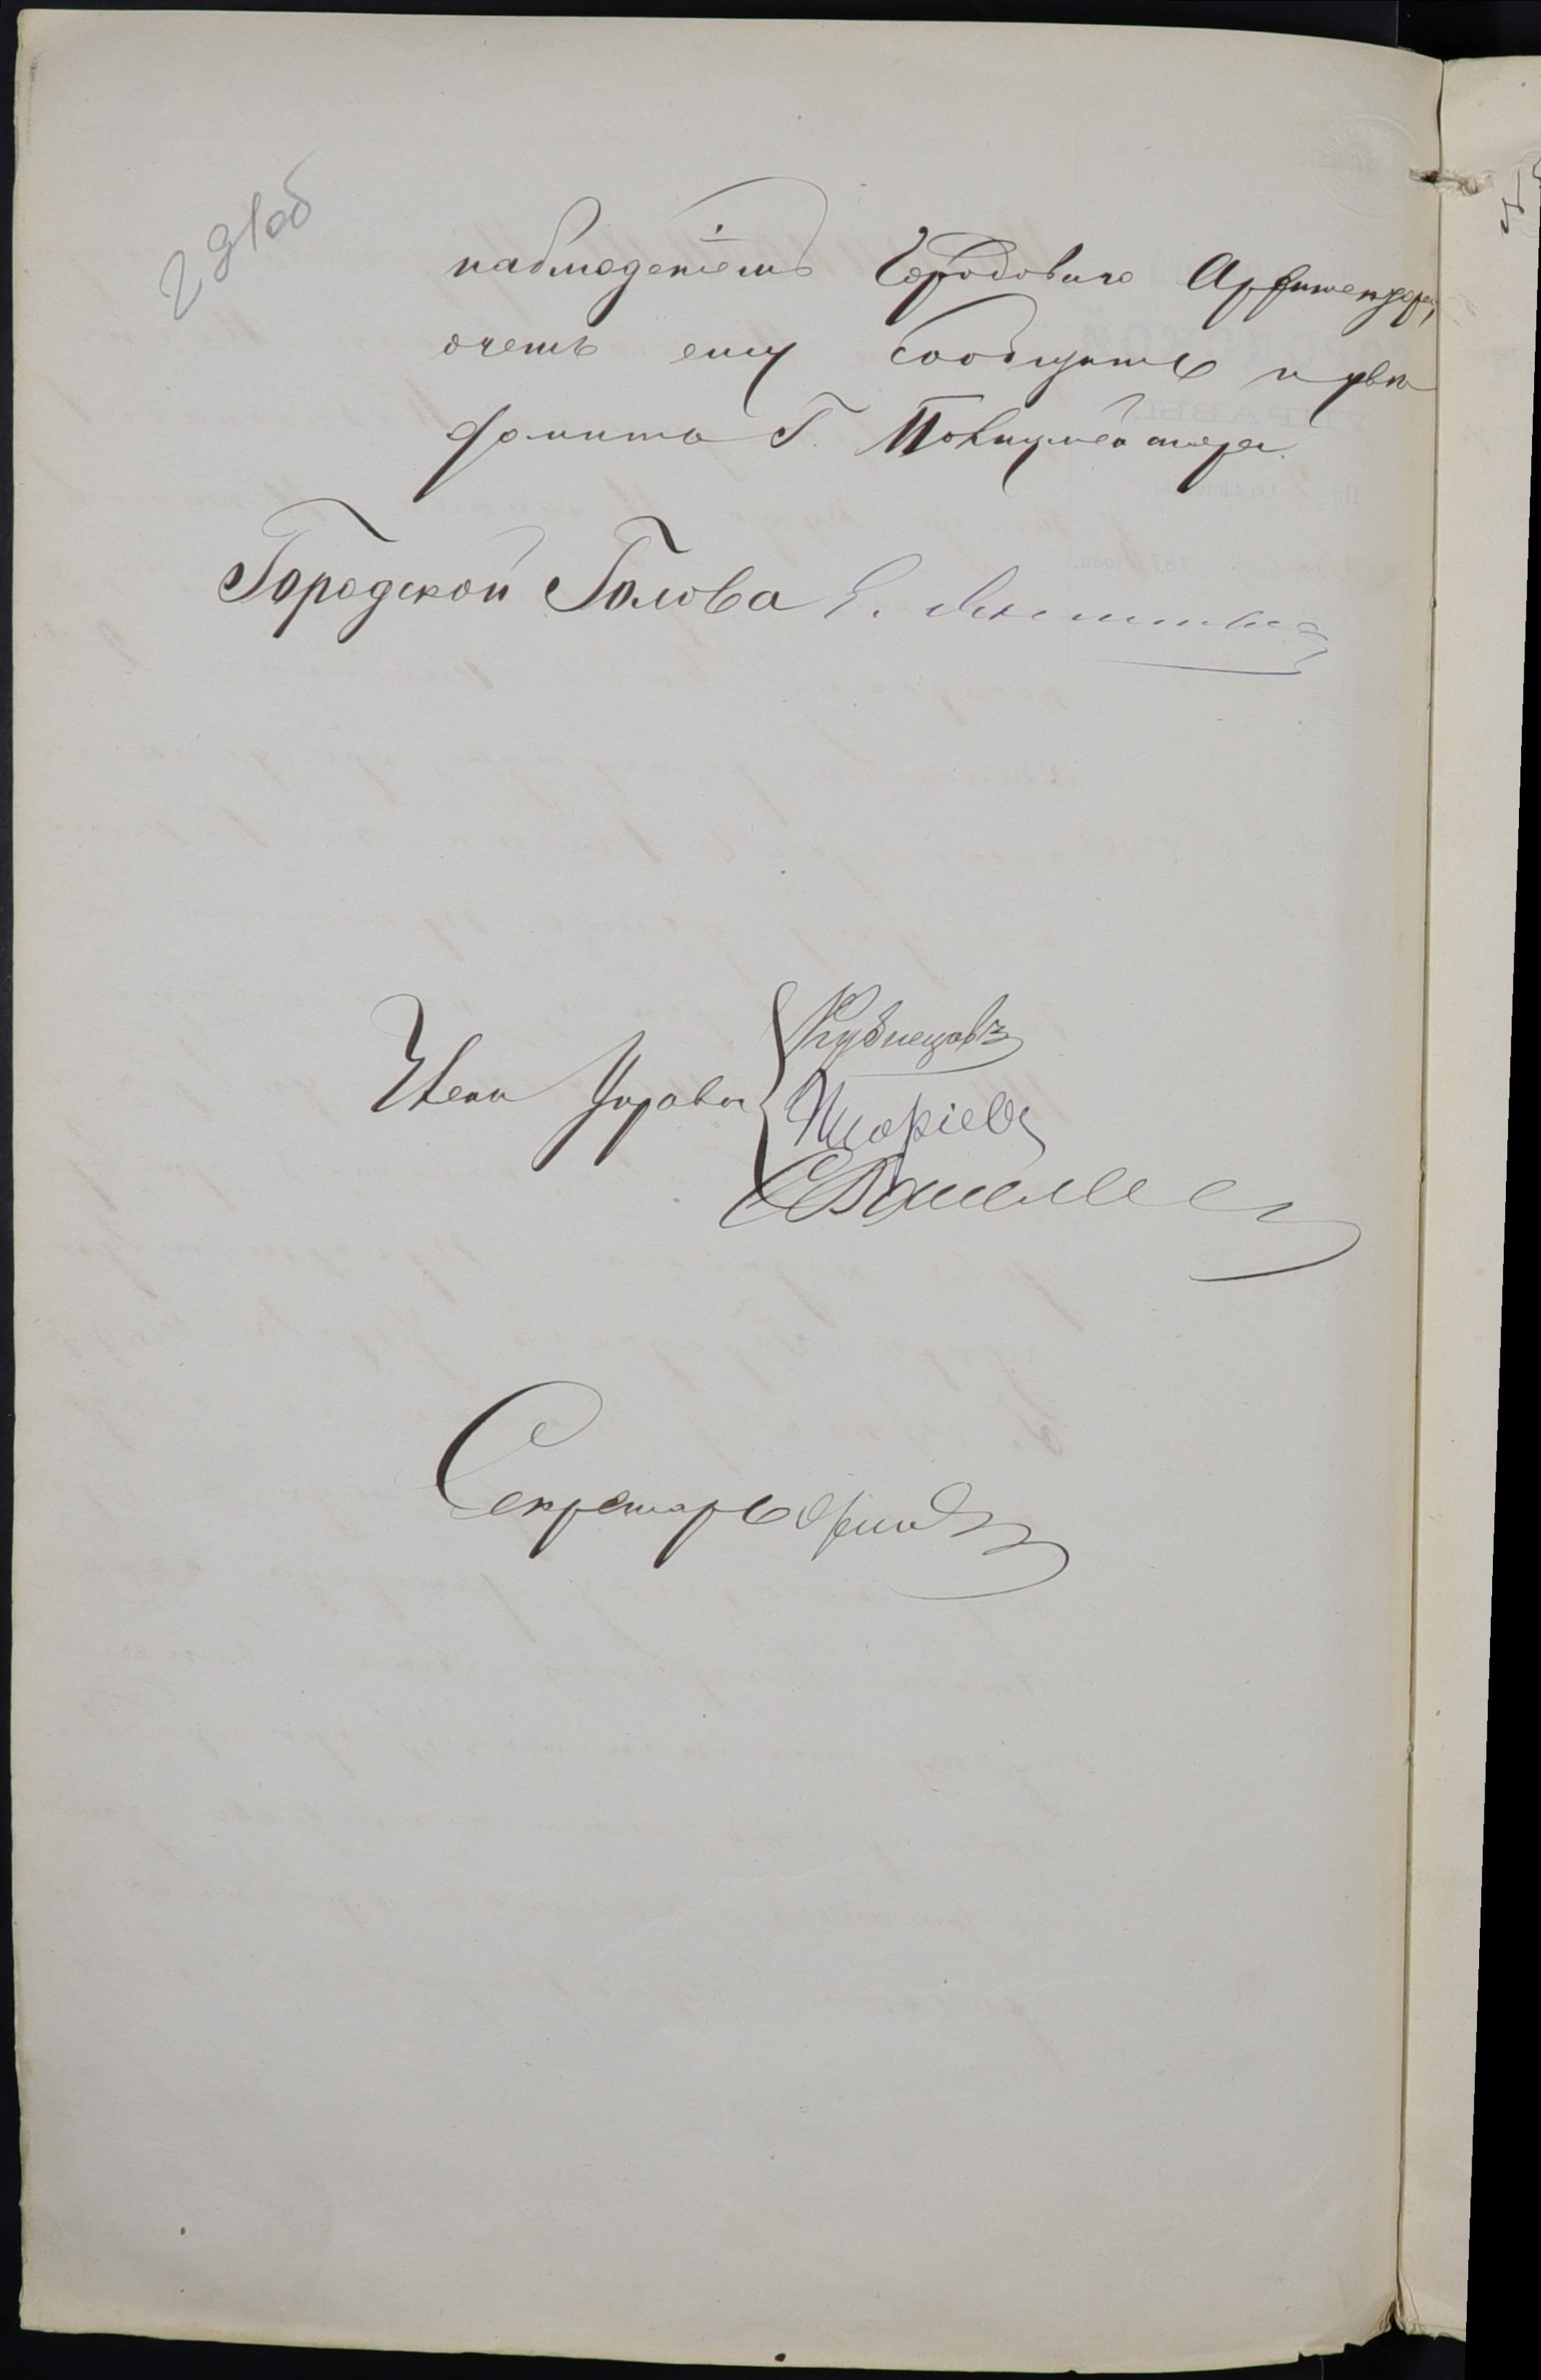 29 об
наблюденіемъ Городоваго Архитектора,
о чемъ ему сообщить и уве
домить Г. Полицмейстера.
Городской Голова Е.
Члены Управы Кузнецовъ
Секретарь